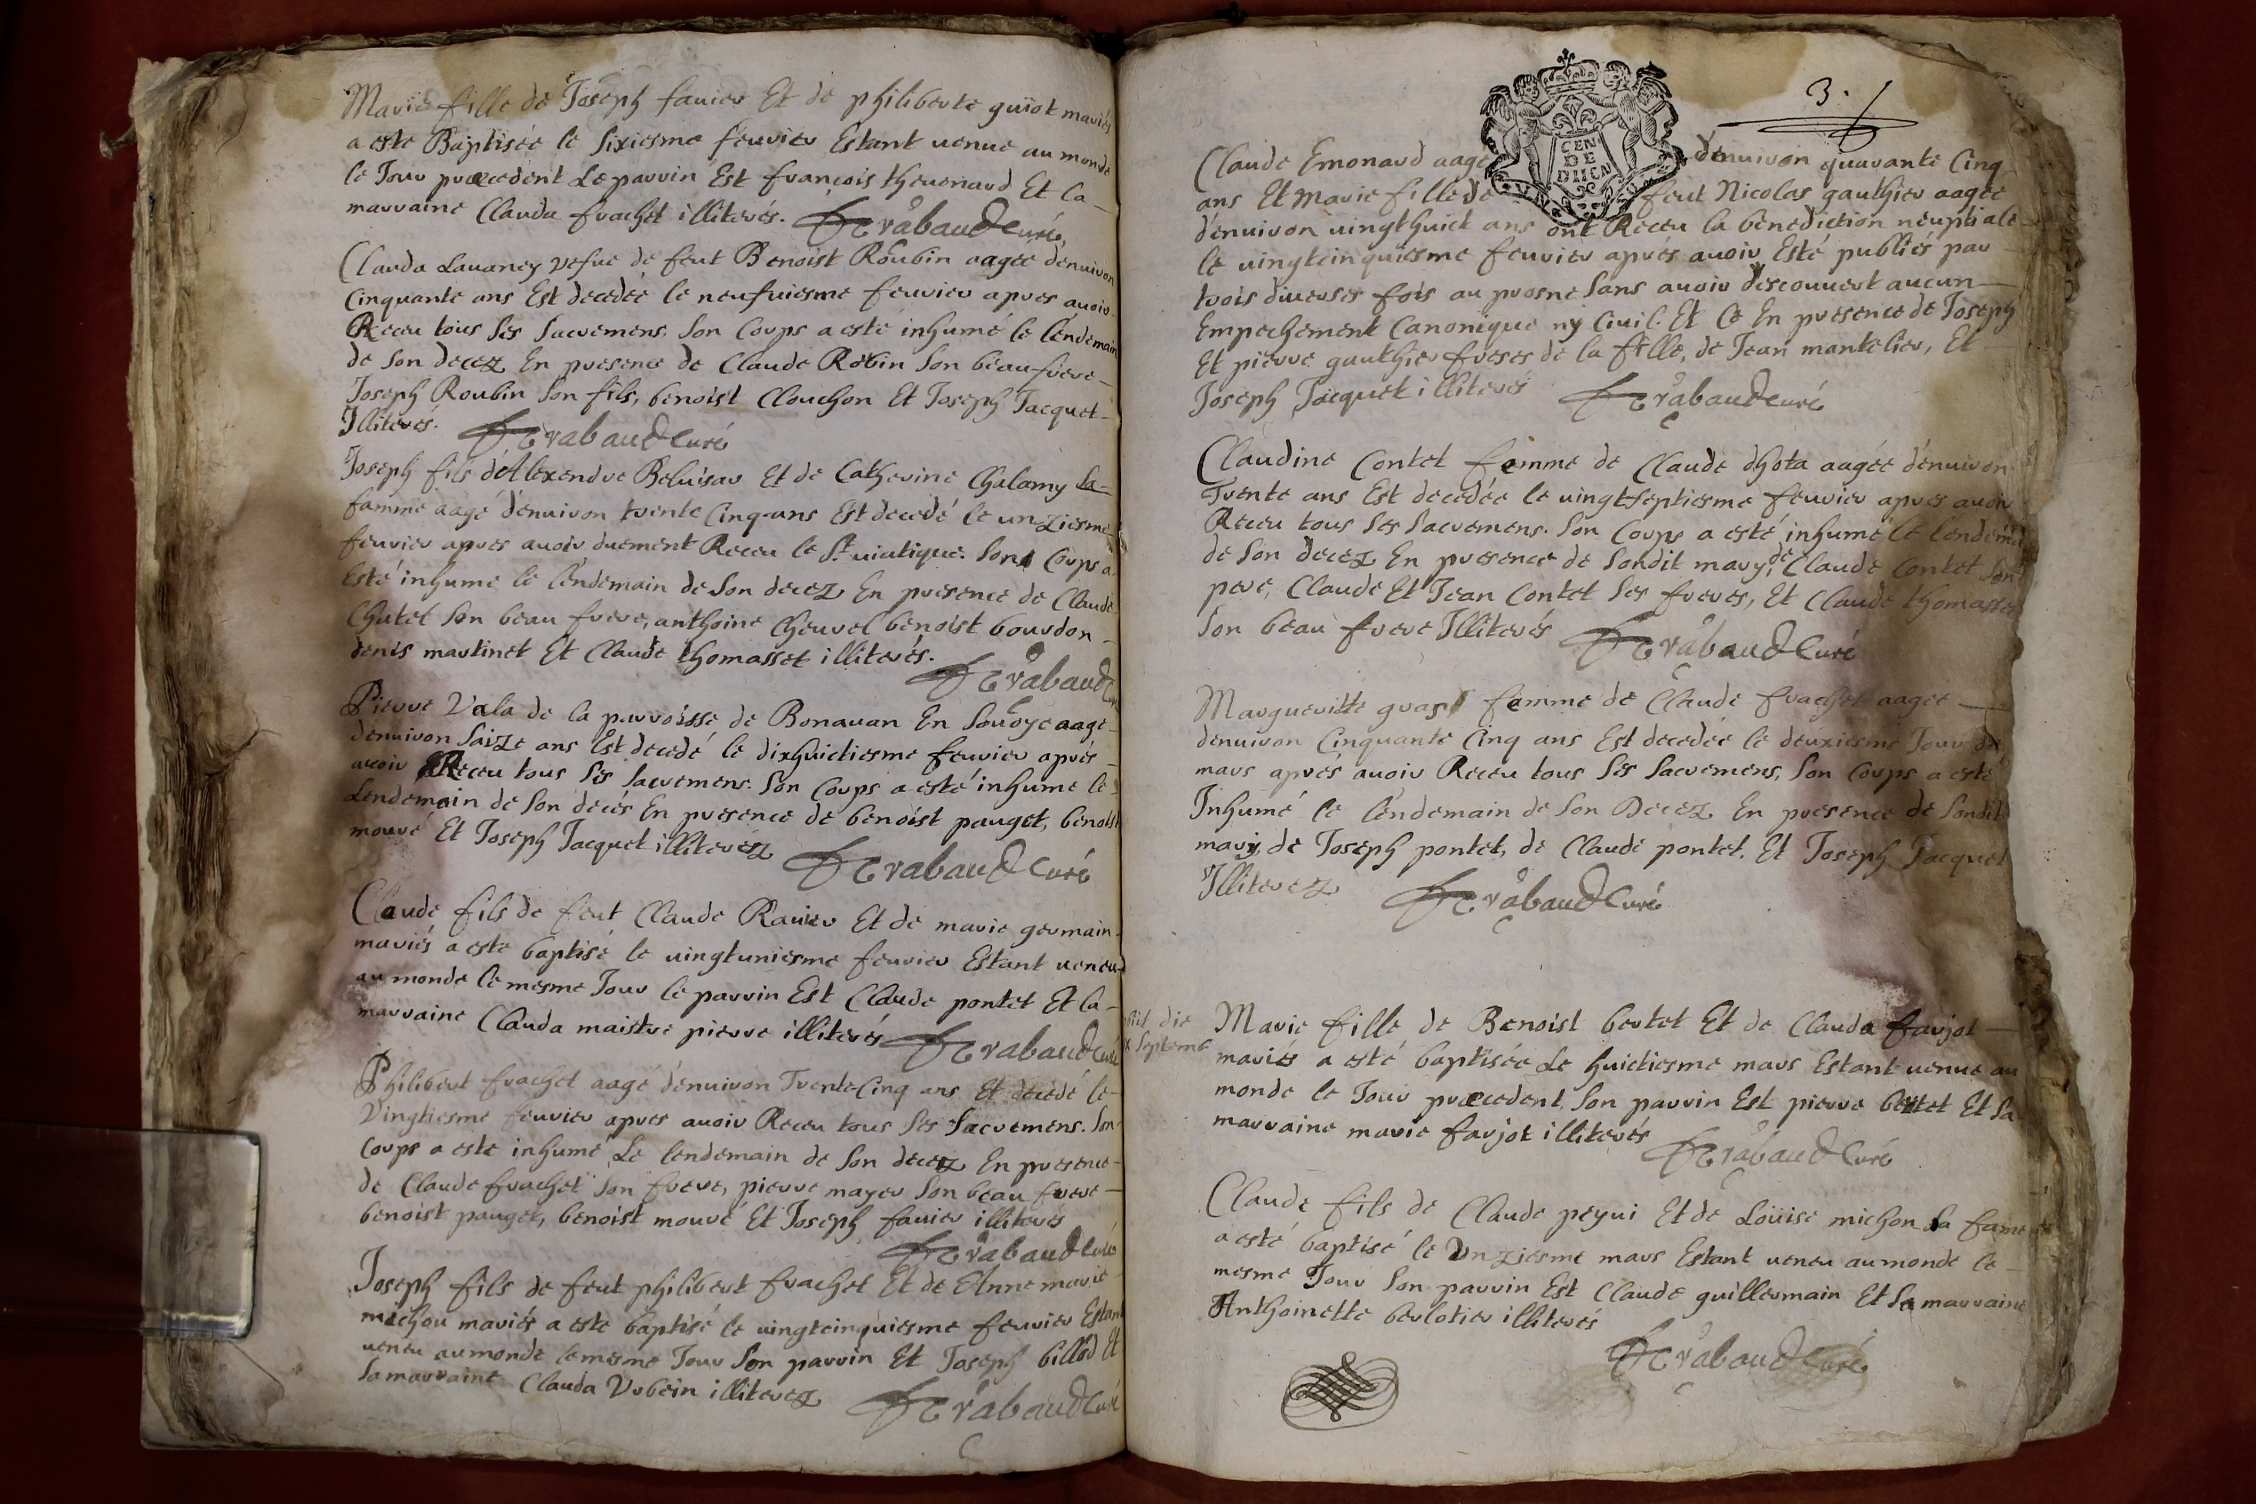 Marie fille de Joseph fauier Et de philiberte guiot mariés
a esté Baptisée le sixiesme feurier Estant uenue au monde
le Jour præcedent Le parrin Est françois theuenard Et la
marraine Clauda frachet illiterés. Trabaud Curé
Clauda Lauaney vefue de feut Benoist Roubin aagée dénuiron
Cinquante ans Est decedée le neufuiesme feurier apres auoir
Receu tous ses sacremens. Son Corps a esté inhumé le lendemain
de son decez En presence de Claude Robin son beaufrere
Joseph Roubin son fils, benoist Clouchon Et Joseph Jacquet
Illiterés. Trabaud Curé
Joseph fils d'Alexendre Beluisar Et de Catherine Chalamy sa
famme aagé dénuiron trente Cinq ans Est decedé le unziesme
feurier apres auoir duement Receu le St uiatique. Son Corps a
Esté inhumé le lendemain de son decez En presence de Claude
Chatel son beau frere, anthoine Cheurel benoist bourdon
denis martinet Et Claude thomasset illiterés.
Trabaud
Pierre Vala de la parroisse de Bonauan En Sauoye aagé
denuiron saize ans Est decedé le dixhuictiesme feurier aprés
auoir Receu tous ses sacremens. Son Corps a esté inhumé le
Lendemain de son decés En presence de benoist pauget, benoist
mouré Et Joseph Jacquet illiteréz Trabaud Curé
Claude fils de feut Claude Rauier Et de marie germain
mariés a esté baptisé le uingtuniesme feurier Estant ueneu
au monde le mesme Jour le parrin Est Claude pontet Et la
marraine Clauda maistre pierre illiterés Trabaud Curé
Philibert frachet aagé dénuiron Trente Cinq ans Et decedé le
Vingtiesme feurier apres auoir Receu tous ses sacremens. Son
Corps a esté inhumé Le lendemain de son decez En presence
de Claude frachet son frere, pierre mayer son beau frere
benoist pauget, benoist mouré Et Joseph fauier illiterés
Trabaud Curé
Joseph fils de feut philibert frachet Et de Anne marie
michou mariés a esté baptisé le uingtcinquiesme feurier Estant
ueneu au monde le mesme Jour Son parrin Et Joseph billod Et
sa marraine Clauda Vrbein illiterez Trabaud Curé
3.
GEN
DE
DIION
Claude Emonard aagé dénuiron quarante Cinq
ans Et Marie fille de feut Nicolas gauthier aagée
dénuiron uingthuict ans ont Receu la benediction neuptiale
le uingtcinquiesme feurier aprés auoir Esté publiés par
trois diuerses fois au prosne sans auoir descouuert aucun
Empechement Canonique ny Ciuil. Et Ce En presence de Joseph
Et pierre gauthier freres de la fille, de Jean mantelier, Et
Joseph Jacquet illiterés Trabaud Curé
Claudine Contet femme de Claude dhota aagée dénuiron
Trente ans Est decedée le uingtseptiesme feurier apres auoir
Receu tous ses sacremens. Son Corps a esté inhumé le lendemain
de son decez En presence de sondit mary, de Claude Contet son
pere, Claude Et Jean Contet ses freres, Et Claude thomasset
son beau frere Illiterés Trabaud Curé
Margueritte gras femme de Claude frachet aagée
dénuiron Cinquante Cinq ans Est decedée le deuxiesme Jour de
mars aprés auoir Receu tous ses sacremens, Son Corps a esté
Inhumé le lendemain de son Decez En presence de sondit
mary, de Joseph pontet, de Claude pontet, Et Joseph Jacquet
Illiterez Trabaud Curé
die
Septemb
Marie fille de Benoist bertet Et de Clauda farjot
mariés a esté baptisée Le huictiesme mars Estant uenue au
monde le Jour præcedent, Son parrin Est pierre bertet Et sa
marraine marie farjot illiterés Trabaud Curé
Claude fils de Claude peyui Et de Loüise michon sa fame
a esté baptisé le Vnziesme mars Estant ueneu au monde le
mesme Jour Son parrin Est Claude guillermain Et sa marraine
Anthoinette berlotier illiterés
Trabaud Curé